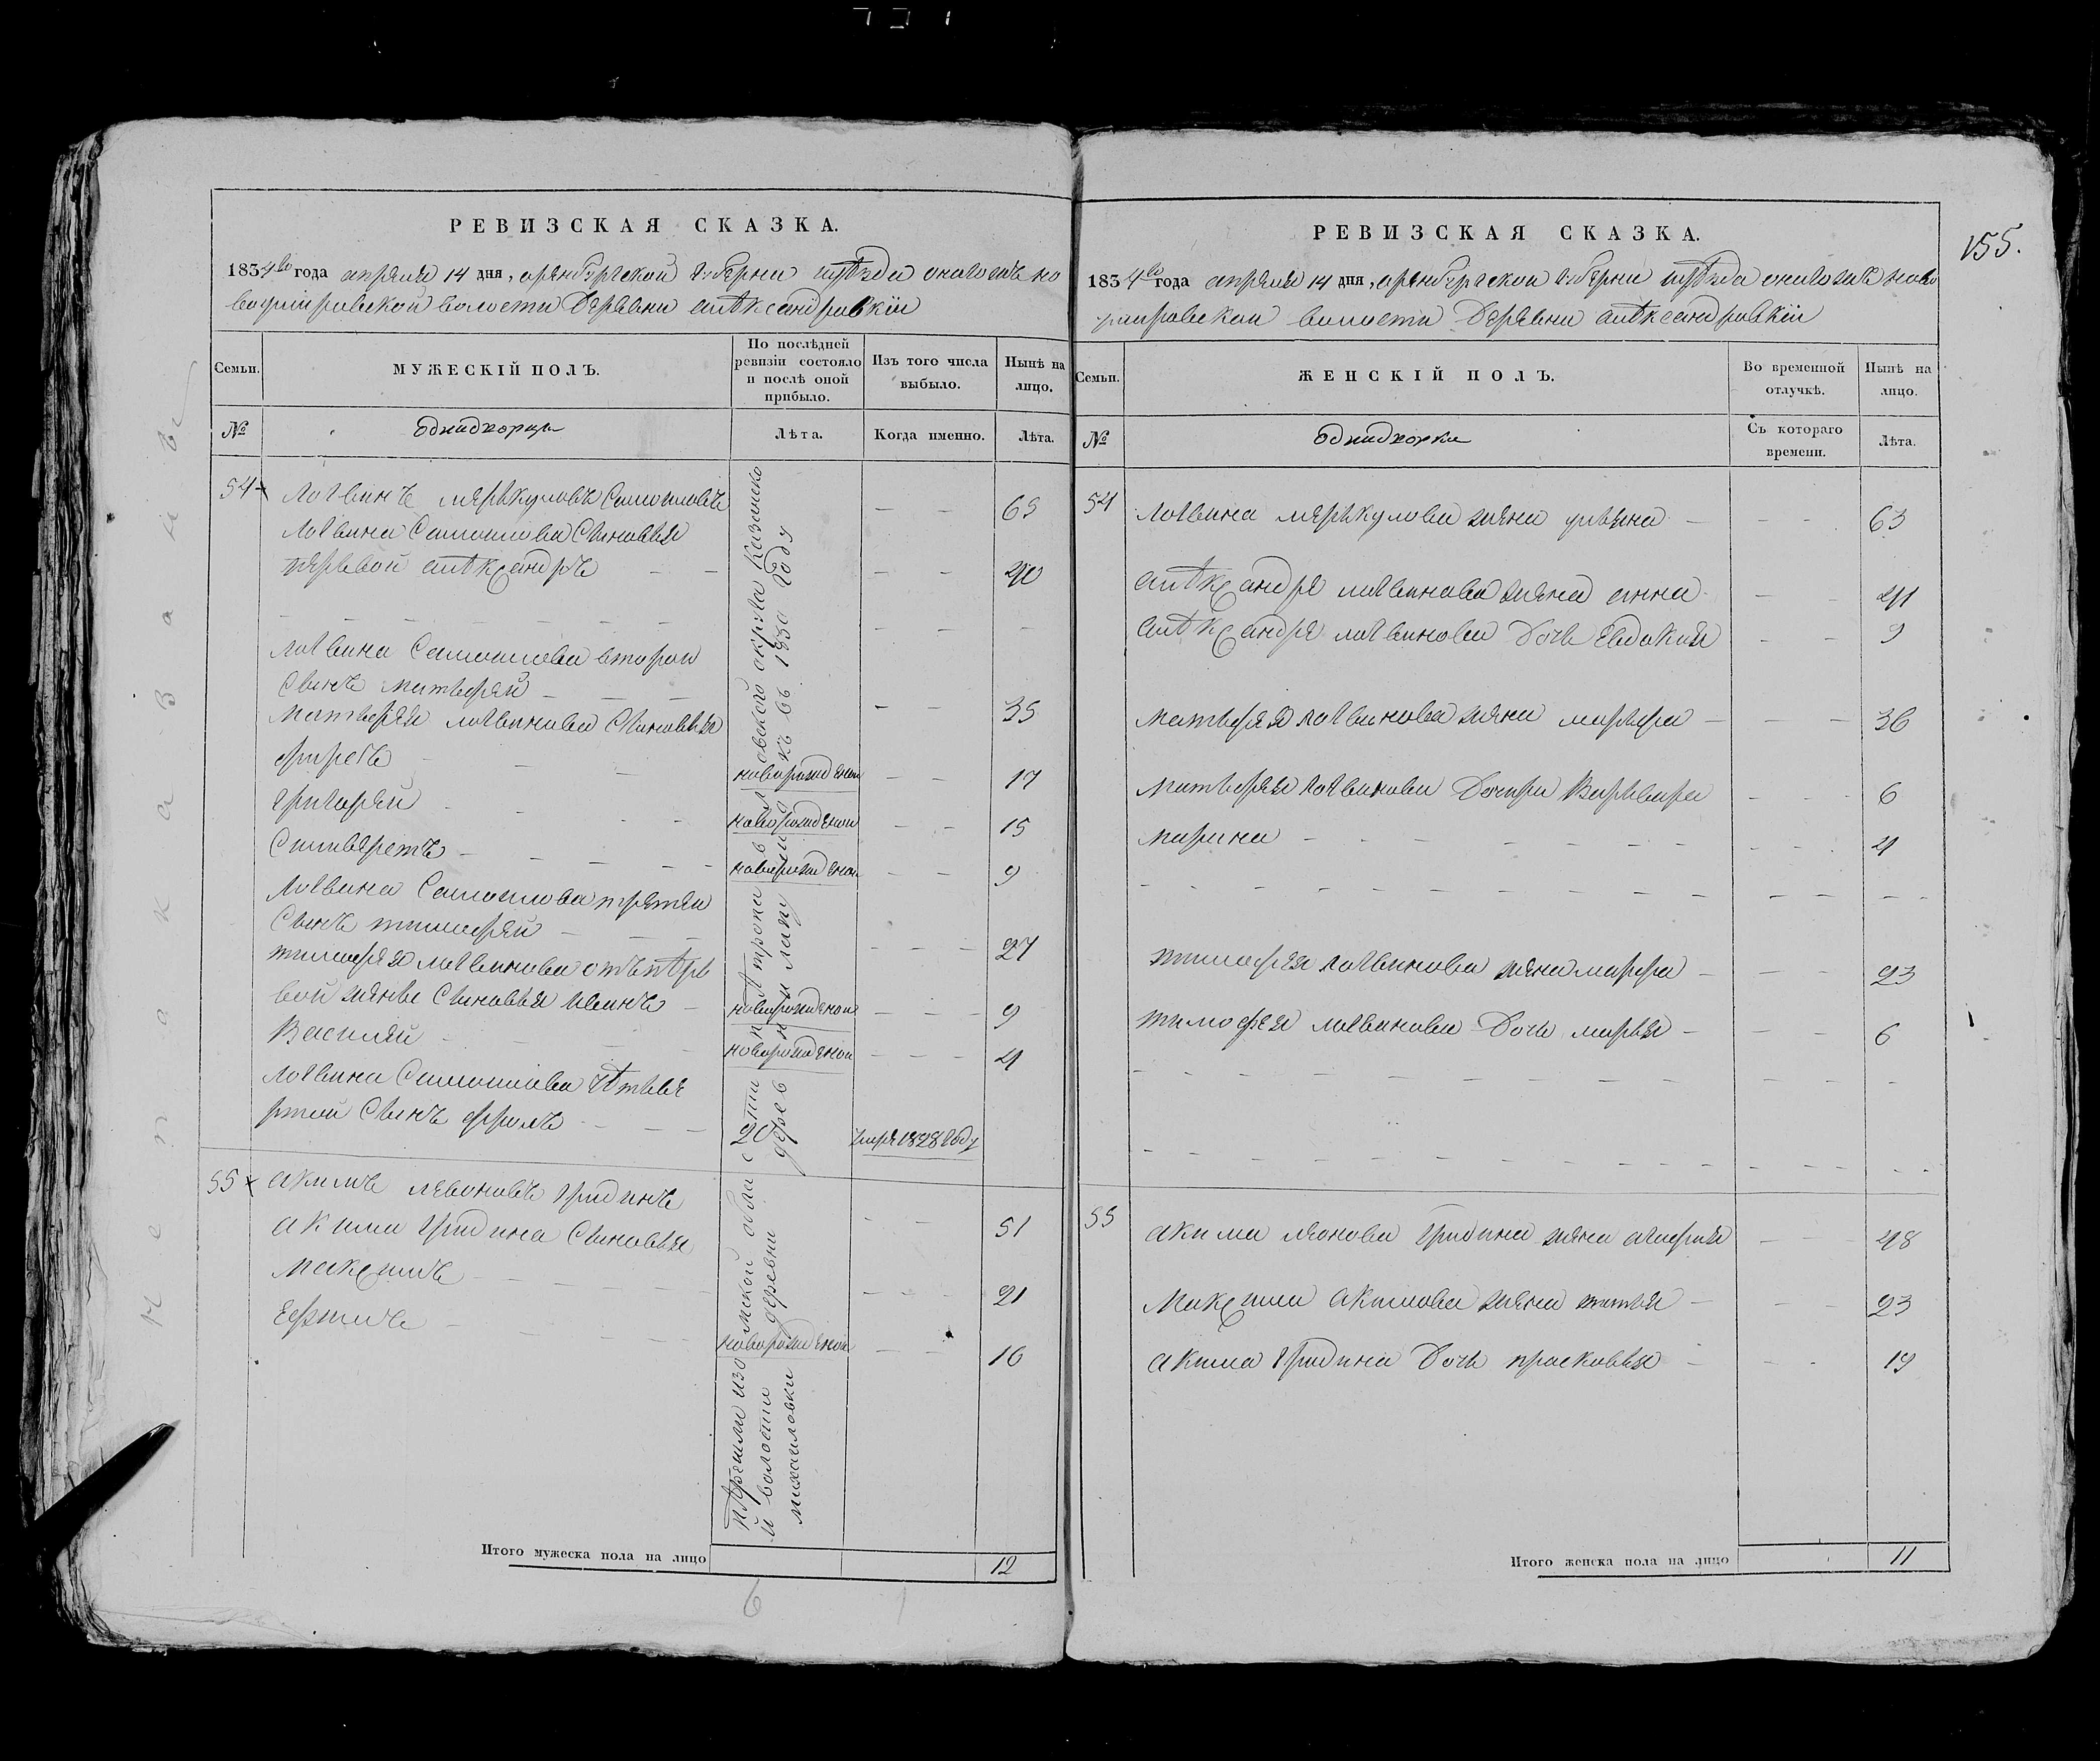 155.
РЕВИЗСКАЯ СКАЗКА.
1834го года апреля 14 дня, оренбургской губерни уезда
волости деревни александровки
Семьи.
МУЖЕСКІЙ ПОЛЪ.
По послѣдней ревизіи состояло и послѣ оной прибыло.
Изъ того числа выбыло.
Нынѣ на лицо.
№
однодворцы
Лѣта.
Когда именно.
Лѣта.
54
логвинъ меркуловъ Самошловъ
65
логвина Самошлова Сыновья
первой александръ
40
логвина Самошлова второй
Сынъ матвфей
35
матвфея логвинова Сыновья
новорожденой 17
григорей новорожденой 15
Силиверстъ новорожденой 9
логвина Самошлова третей
Сынъ тимофей
27
тимофея логвинова отъ пер
вой жены Сыновья иванъ новорожденой 9
Василей новорожденой 4
логвина Самошлова четве
ртой Сынъ фролъ 20 умре 1828 году
55
акимъ левоновъ гридинъ
51
акима гридина Сыновья
максимъ
21
Ефимъ новорожденой 16
деревни
волости
михаиловки
Итого мужеска пола на лицо 12
РЕВИЗСКАЯ СКАЗКА.
1834го года апреля 14 дня, оренбургской губерни уезда
волости деревни александровки
Семьи.
ЖЕНСКІЙ ПОЛЪ.
Во временной отлучкѣ.
Нынѣ на лицо.
№
однодворки
Съ котораго времени.
Лѣта.
54
логвина меркулова жена ульяна 63
александра логвинова жена анна 41
александра логвинова дочь евдокия 9
матвфея логвинова жена марфа 36
матвфея логвинова дочери Варвара 6
марина 4
тимофея логвинова жена марфа 23
тимофея логвинова дочь марья 6
55
акима леонова гридина жена 48
максима акимова жена 23
акима гридина дочь прасковья 19
Итого женска пола на лицо 11